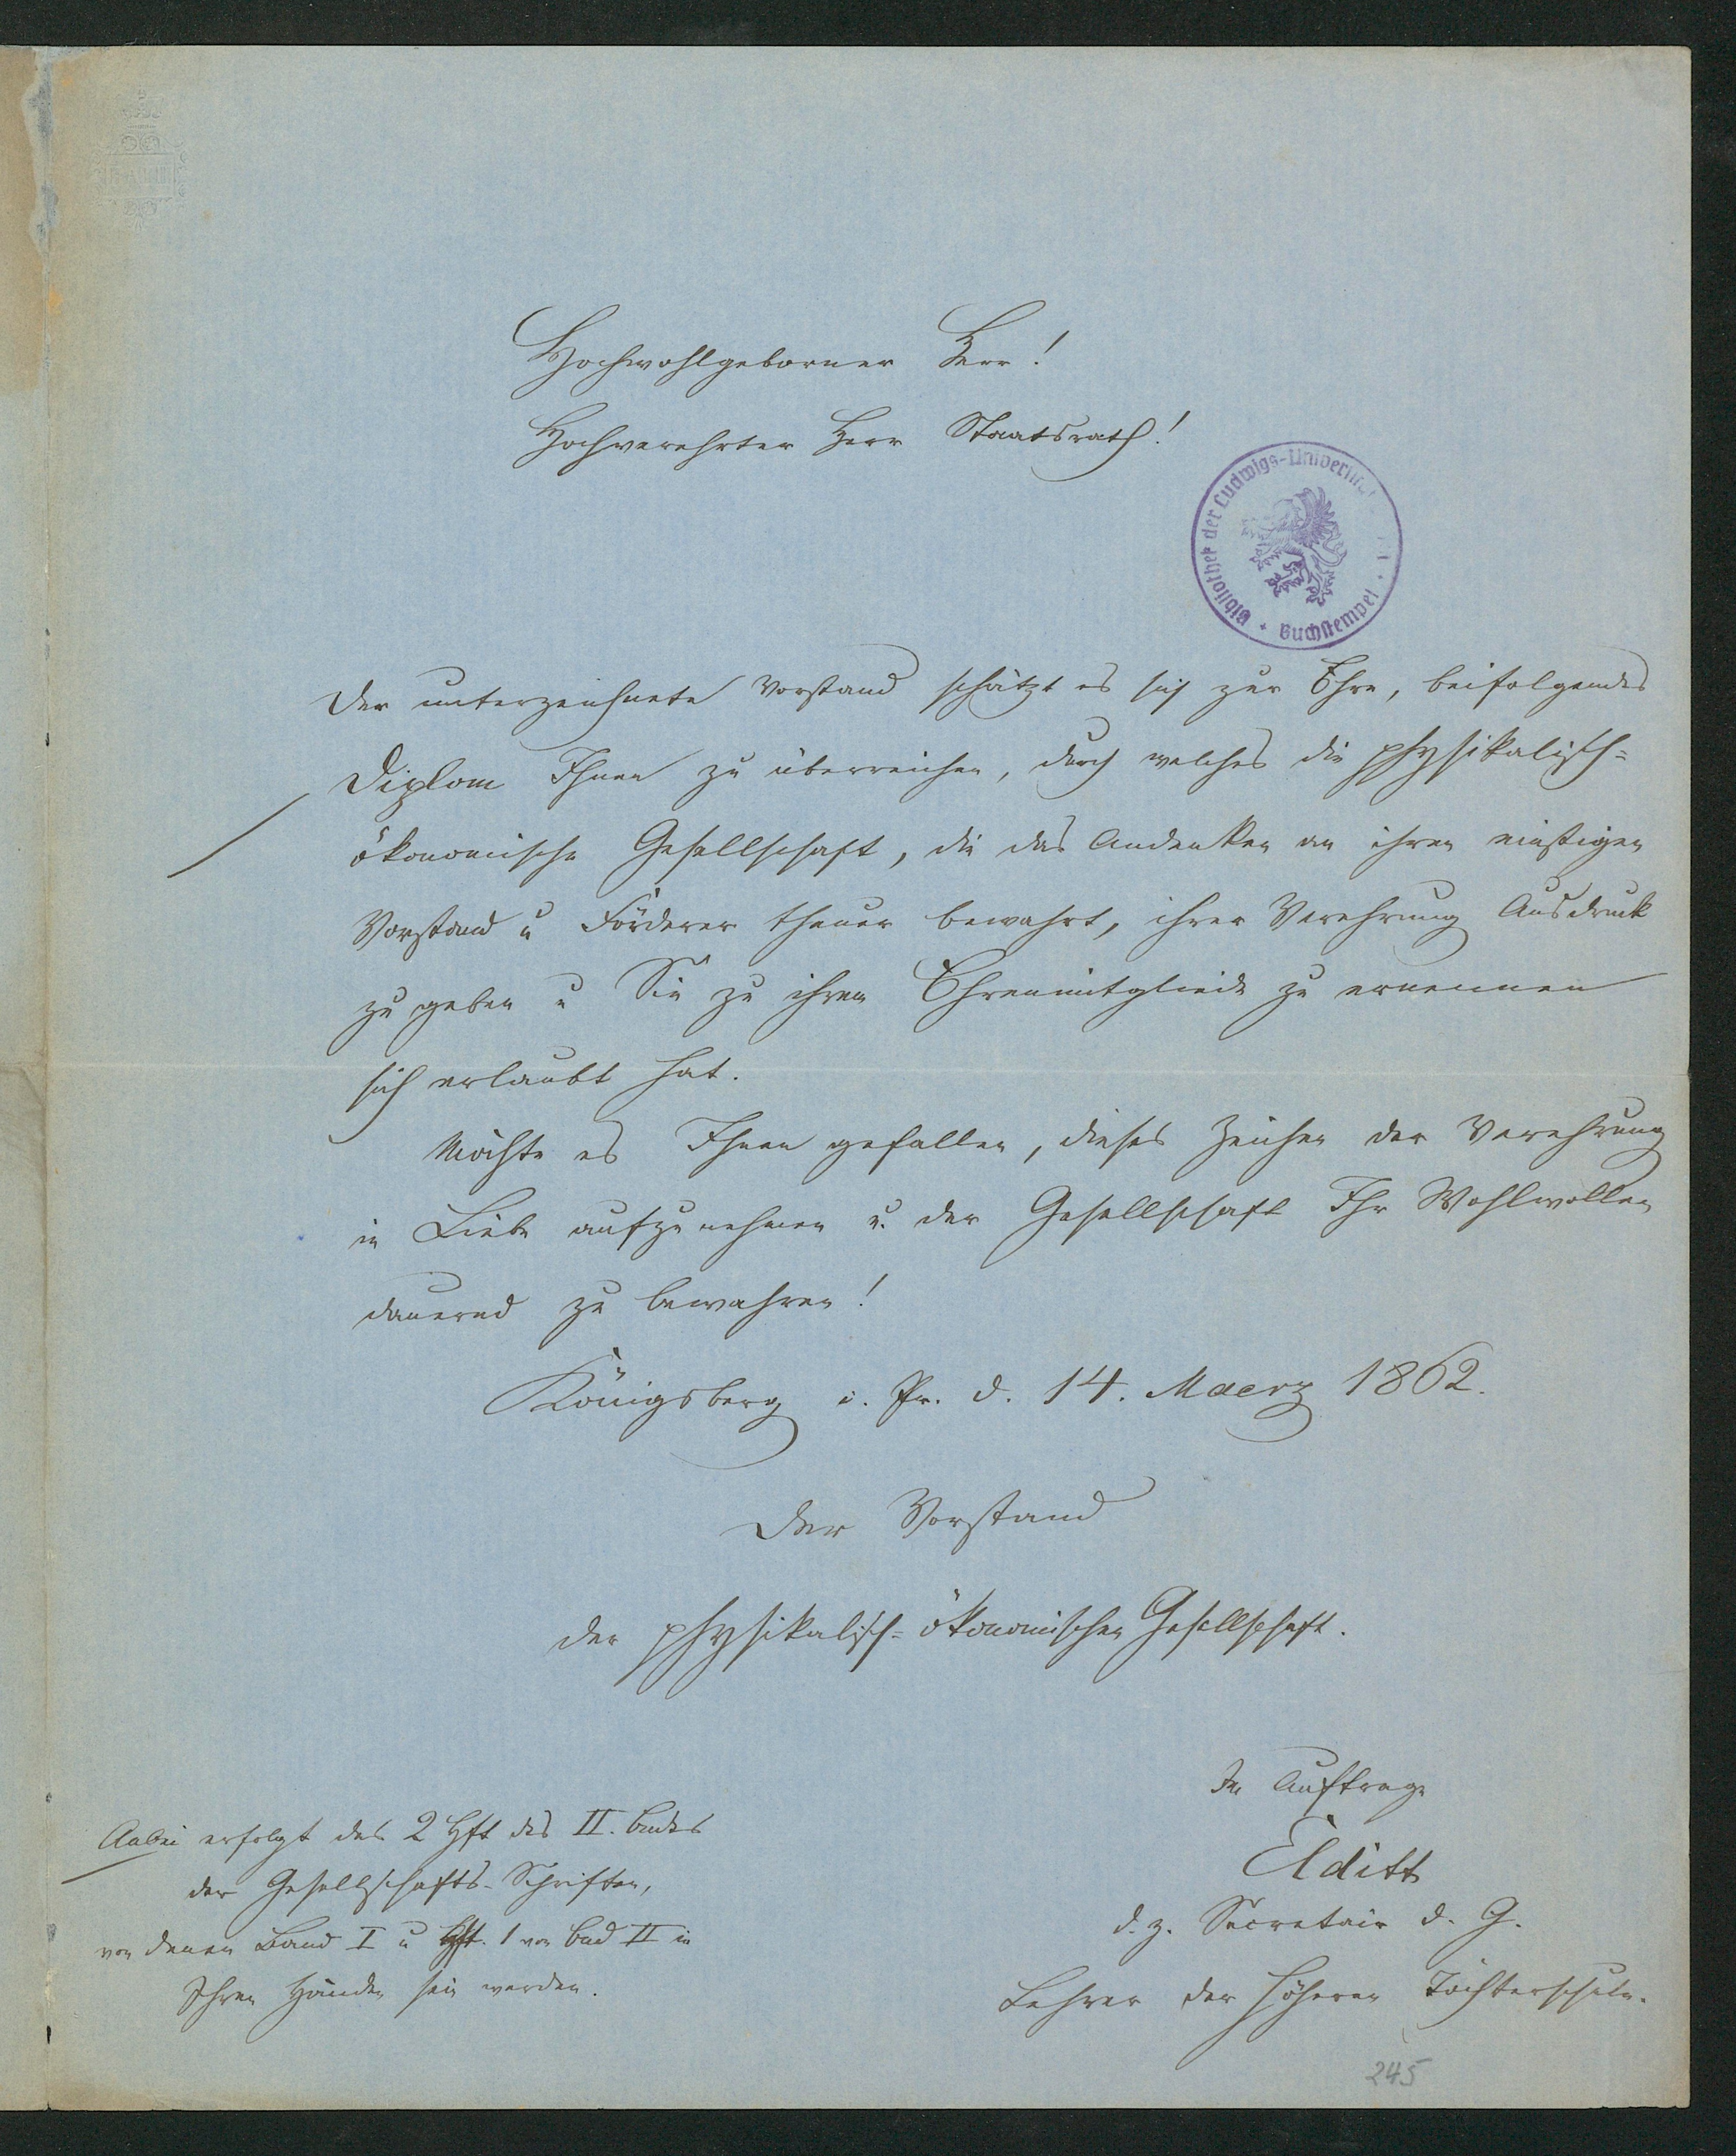 Hochwohlgeborner Herr!
Hochverehrter Herr Staatsrath!
Bibliothek der Ludwigs-Univers
Buchstempel
Der unterzeichnete Vorstand schätzt es sich zur Ehre, beifolgendes
Diplom Ihnen zu überreichen, durch welches die physikalisch-
ökonomische Gesellschaft, die das Andenken an ihren einstigen
Vorstand u Förderer theuer bewahrt, ihrer Verehrung Ausdruck
zu geben u Sie zu ihrem Ehrenmitgliede zu ernennen
sich erlaubt hat.
Möchte es Ihnen gefallen, dieses Zeichen der Verehrung
in Liebe aufzunehmen u. der Gesellschaft Ihr Wohlwollen
dauernd zu bewahren!
Königsberg i. Pr. d. 14. Maerz 1862.
Der Vorstand
der physikalisch-ökonomischen Gesellschaft.
Im Auftrage
Elditt
d. z. Secretair d. G.
Lehrer der höheren Töchterschule.
Anbei erfolgt das 2 Hft des II. Bandes
der Gesellschafts-Schriften,
von denen Band I u Hft. 1 von Bnd II in
Ihren Händen sein werden.
245